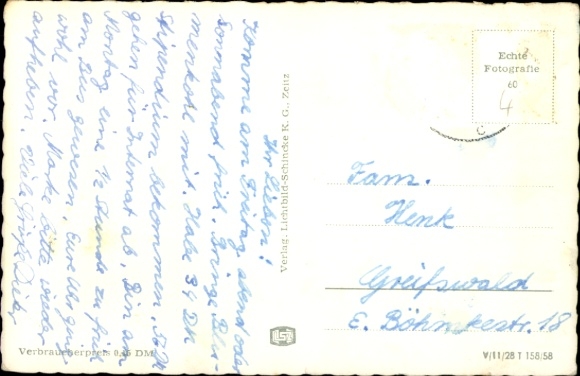 Ihr Lieben!
Komme am Freitag abend oder
Sonnabend früh. Bringe Blu-
menkohl mit. Habe 34 DM
Stipendium bekommen,
gehen für Internat ab. Bin am
Montag eine 1/2 Stunde zu früh
am Bus gewesen, Eure Uhr ging
wohl vor. Marke bitte wieder
aufheben. Viele Grüße
Verlag. Lichtbild-Schincke K. G., Zeitz
Echte
Fotografie
60
4
Fam.
Henk
Greifswald
E. Böhmkestr. 18
Verbraucherpreis 0,25 DM
V/11/28 T 158/58